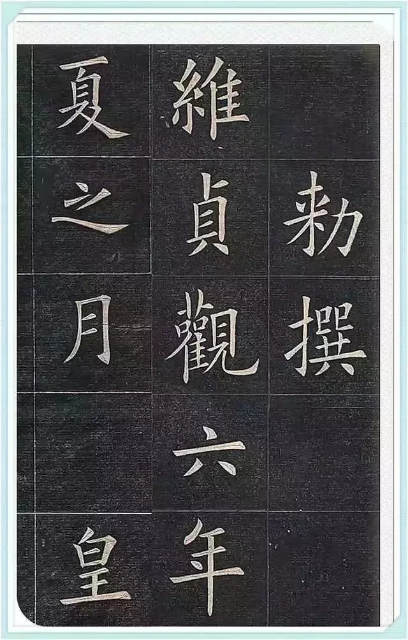 勑撰
維貞觀六年
夏之月皇